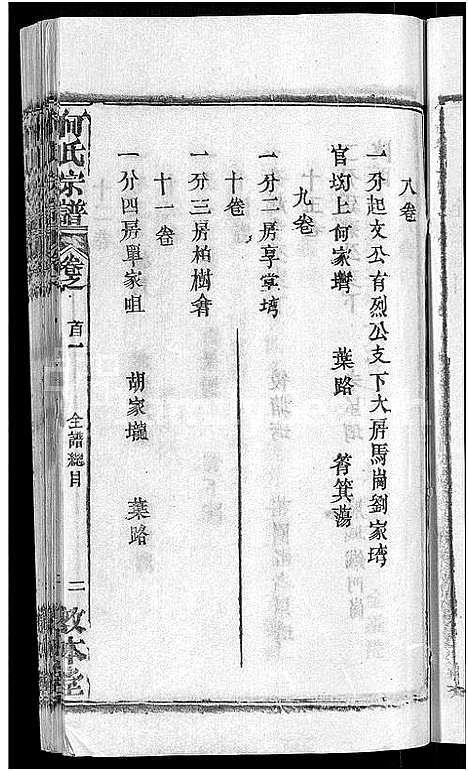 八卷
一分起文公有烈公支下大房馬崗劉家塆
官塆上何家塆　葉路　筲箕蕩
九卷
一分二房享堂塆
十卷
一分三房柏樹會
十一卷
一分四房單家咀　胡家壠　葉路
何氏宗譜　卷之首一　全譜總目　二　敦本堂